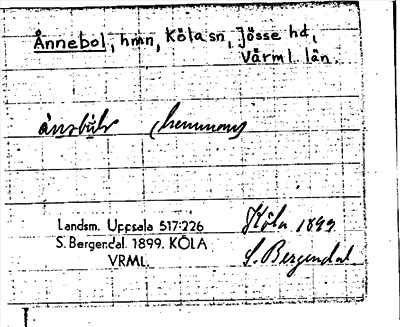 Ånnebol, hmn, Köla sn, Jösse hd,
Värml. län.
ånsbúls (hemmans)
Landsm. Uppsala 517:226
S. Bergendal. 1899. KÖLA
VRML.
Köla 1899.
S. Bergendal